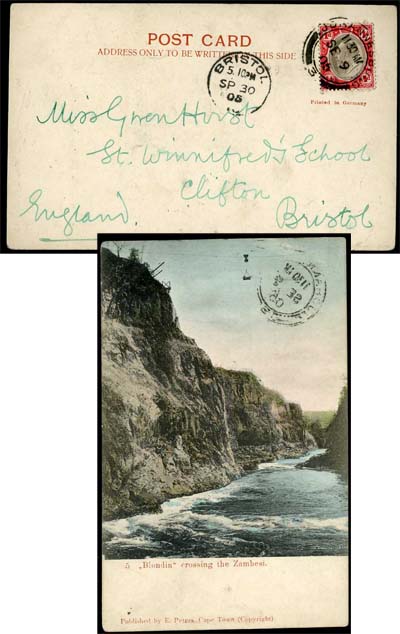 POST CARD
ADDRESS ONLY TO BE WRITTEN ON THIS SIDE
BRISTOL
5. 10 PM
SP 30
05
Printed in Germany
Miss Gwen Hurst
St. Winnifred's School
Clifton
England. Bristol
5 „Blondin" crossing the Zambesi.
Published by E. Peters, Cape Town (Copyright)